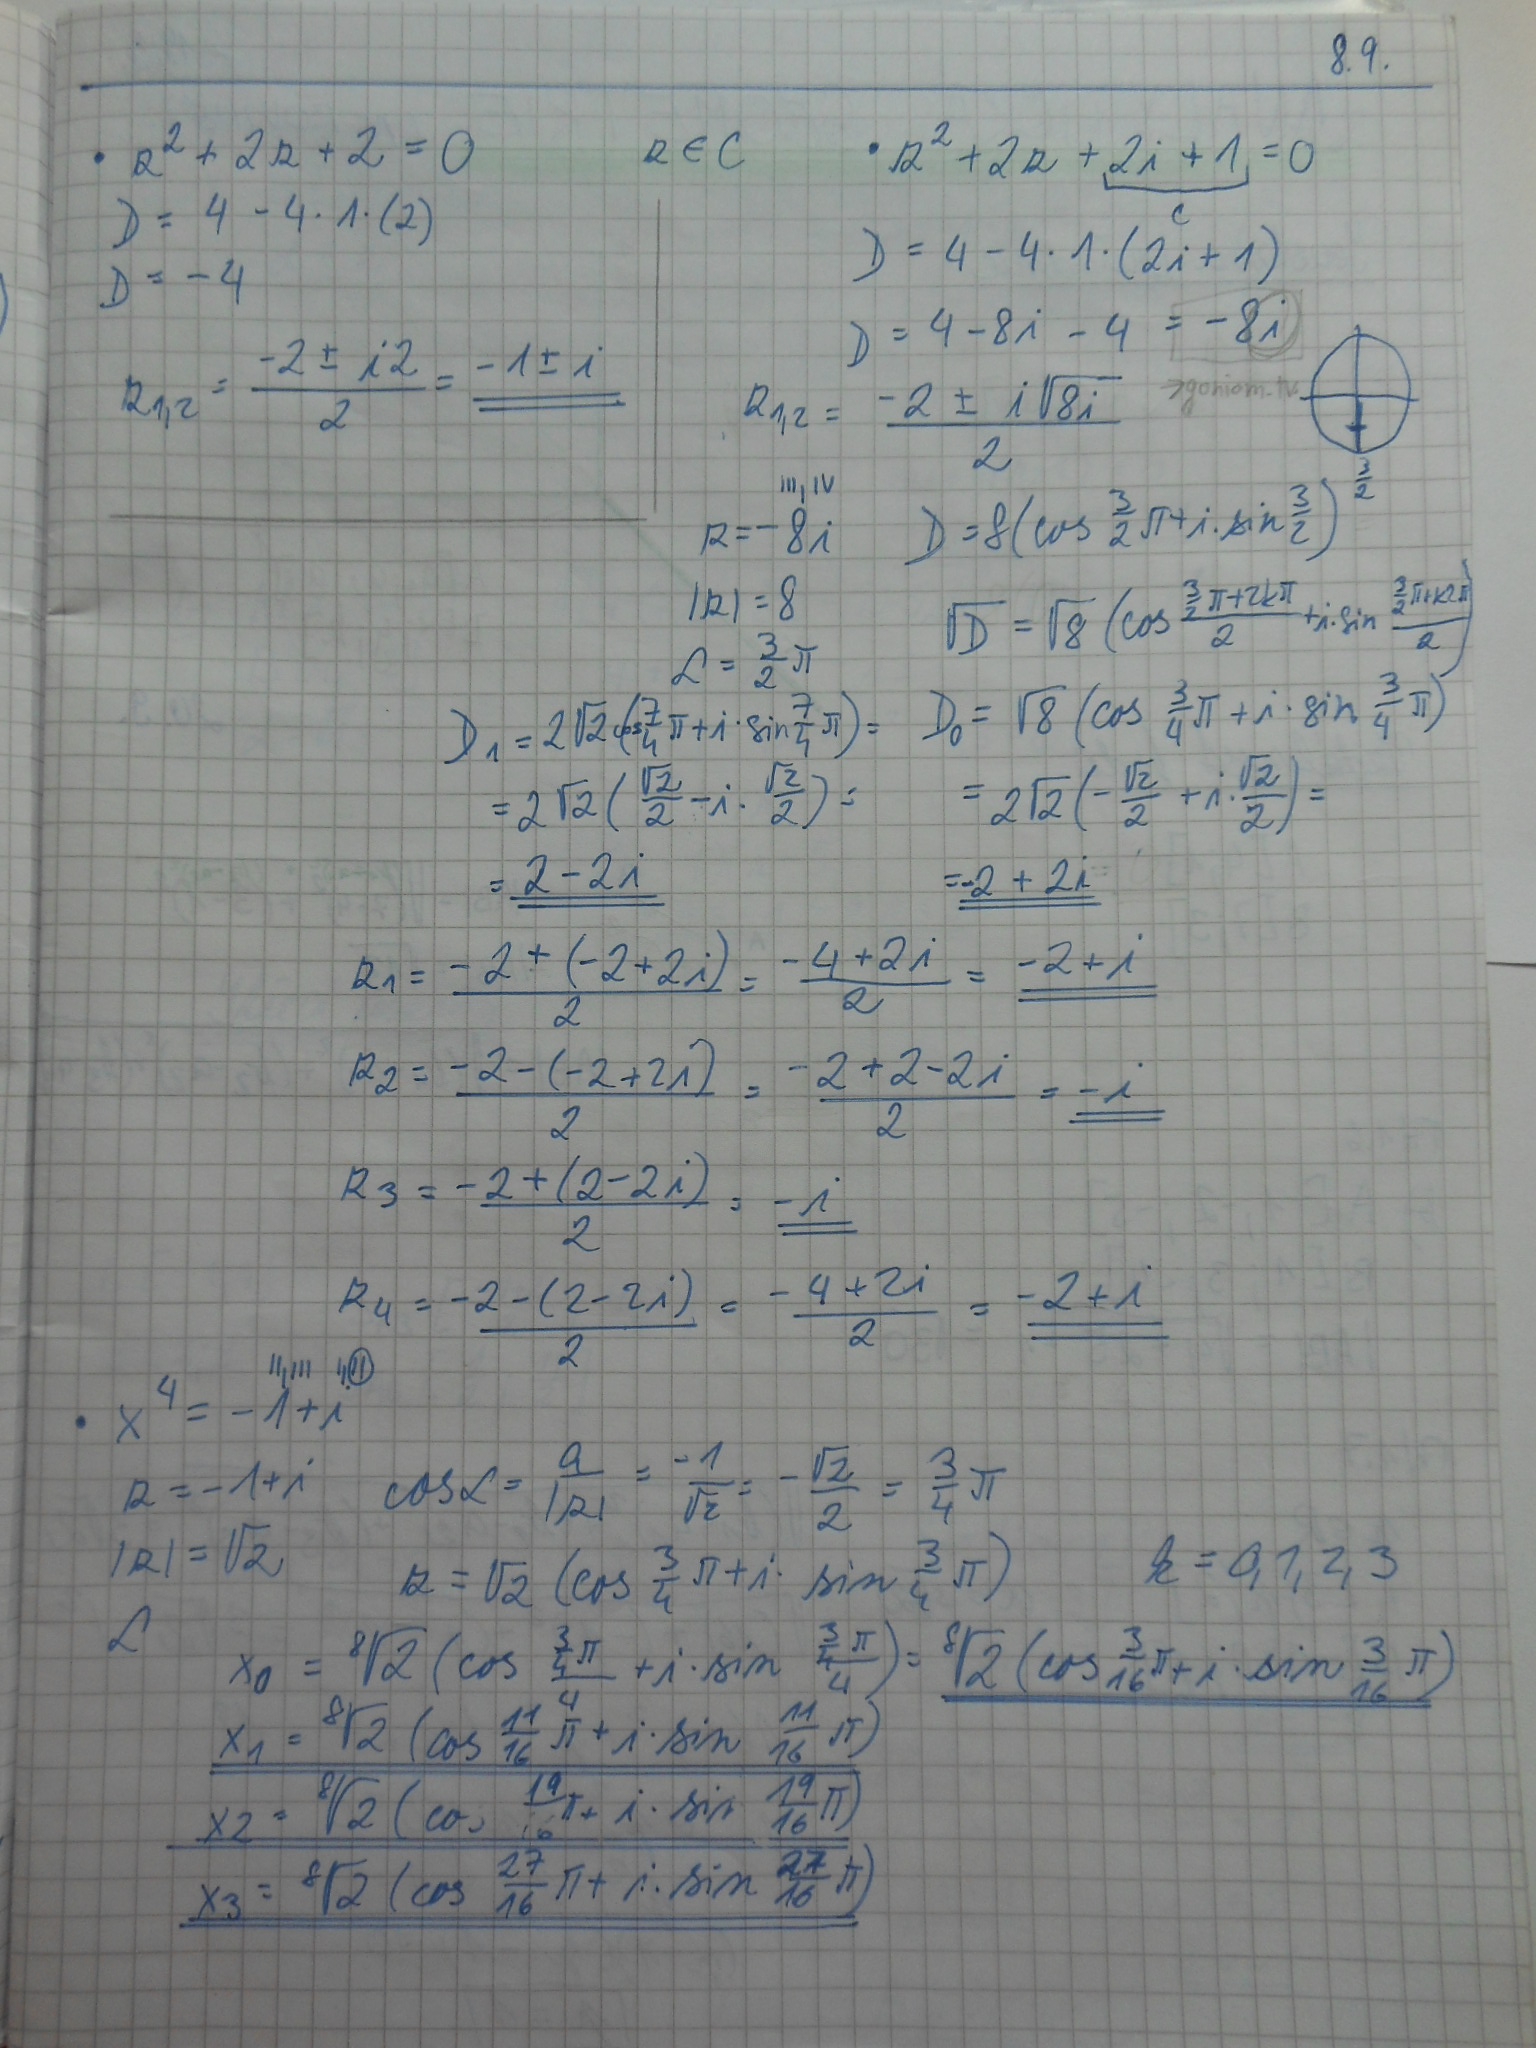 8.9.
• z² + 2z + 2 = 0    z ∈ C
D = 4 - 4·1·(2)
D = -4
z₁,₂ = (-2 ± i2)/2 = -1 ± i
• z² + 2z + 2i + 1 = 0
c
D = 4 - 4·1·(2i + 1)
D = 4 - 8i - 4 = -8i
z₁,₂ = (-2 ± i√8i)/2
3/2
III, IV
z = -8i    D = 8(cos 3/2 π + i·sin 3/2)
|z| = 8    √D = √8 (cos (3/2 π + 2kπ)/2 + i·sin (3/2 π + k2π)/2)
α = 3/2 π
D₁ = 2√2 (cos 7/4 π + i·sin 7/4 π) =    D₀ = √8 (cos 3/4 π + i·sin 3/4 π)
= 2√2 (√2/2 - i·√2/2) =    = 2√2 (-√2/2 + i·√2/2) =
= 2 - 2i    = -2 + 2i
z₁ = (-2 + (-2 + 2i))/2 = (-4 + 2i)/2 = -2 + i
z₂ = (-2 - (-2 + 2i))/2 = (-2 + 2 - 2i)/2 = -i
z₃ = (-2 + (2 - 2i))/2 = -i
z₄ = (-2 - (2 - 2i))/2 = (-4 + 2i)/2 = -2 + i
II, III  I, II
• x⁴ = -1 + i
z = -1 + i    cos α = a/|z| = -1/√2 = -√2/2 = 3/4 π
|z| = √2    z = √2 (cos 3/4 π + i· sin 3/4 π)    k = 0, 1, 2, 3
α
x₀ = ⁸√2 (cos (3/4 π)/4 + i·sin (3/4 π)/4) = ⁸√2 (cos 3/16 π + i·sin 3/16 π)
x₁ = ⁸√2 (cos 11/16 π + i·sin 11/16 π)
x₂ = ⁸√2 (cos 19/16 π + i·sin 19/16 π)
x₃ = ⁸√2 (cos 27/16 π + i·sin 27/16 π)